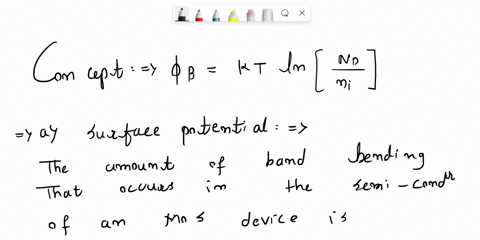 Concept: => ϕB = KT ln [ND/ni]
=> ay surface potential: =>
The amount of band bending
That occurs in the semi-condʳ
of an MOS device is